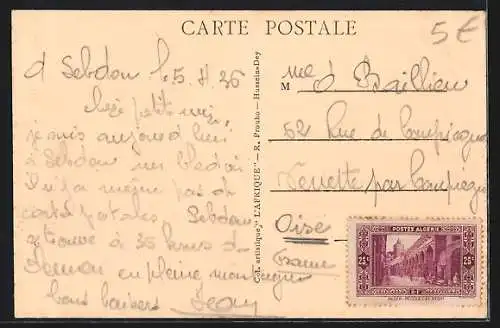 CARTE POSTALE
5€
à Sebdou le 5. 8 36
Chère petite
je suis aujourd'hui
à Sebdou un bled où
il n'y a même pas de
cartes postales, Sebdou
se trouve à 35 kmes de
Tlemcen en pleine montagne
bons baisers Jean
Col. artistique "L'AFRIQUE" - R. Prouho - Hussein-Dey
M
Mme d Baillieu
62 Rue de Compiègne
Venette par Compiègne
Oise
France
POSTES ALGERIE
25c 25c
ALGER-MOSQUEE DE SIDI